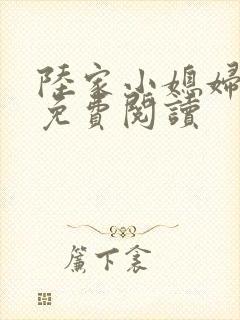 陸家小媳婦
免費閱讀
簾下衾